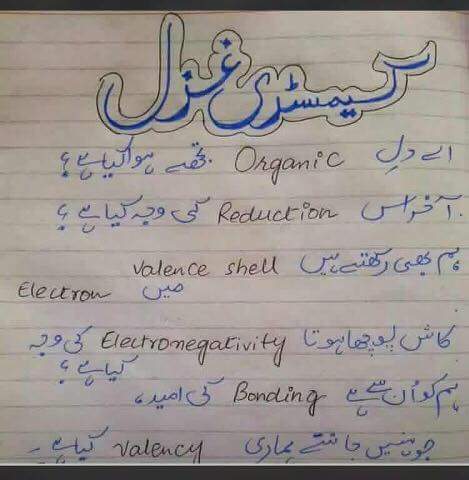 کیمسٹری غزل
اے دلِ Organic تجھے ہوا کیا ہے؟
آخر اس Reduction کی وجہ کیا ہے؟
ہم بھی رکھتے ہیں valence shell میں Electron
کاش پوچھا ہوتا Electronegativity کی وجہ کیا ہے؟
ہم کو اُن سے ہے Bonding کی امید،
جو نہیں جانتے ہماری valency کیا ہے۔